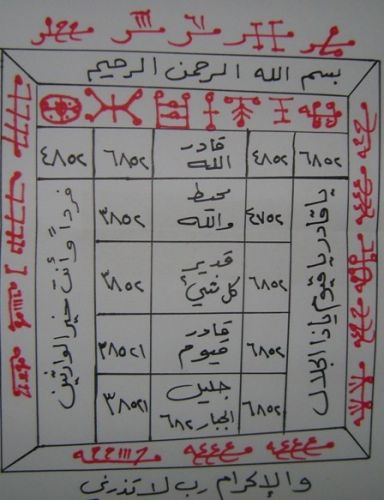 بسم الله الرحمن الرحيم
٦٨٥٢ ٤٨٥٢ قادر ٦٨٥٢ ٤٨٥٢
الله
محيط
٤٧٥٢ والله ٣٨٥٢
قدير
٦٨٥٢ كل شيئ ٣٨٥٢
قادر
٦٨٥٢ قيوم ٣٨٥٢١
جليل
٦٨٥٢ الجبار ٦٨٢ ٣٨٥٢١
يا قادر يا قيوم يا ذا الجلال
والإكرام رب لا تذرني
فرداً وأنت خير الوارثين